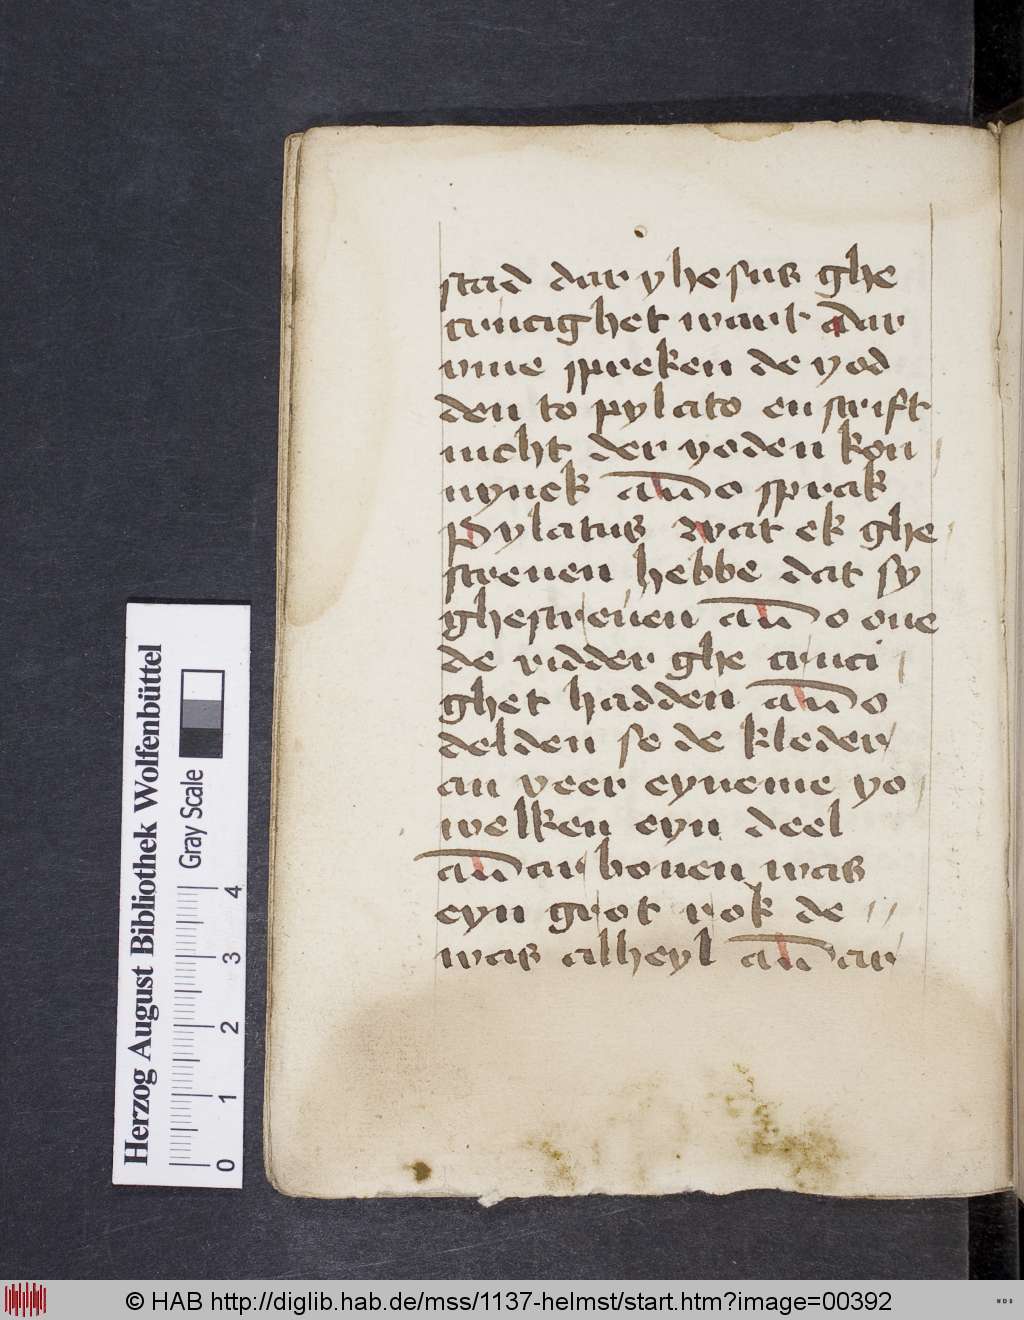 stad dar yhesus ghe
crucighet wart dar
vme spreken de yod
den to pylato en scrift
nicht der yoden kon
nynck also sprak
Pylatus wat ek ghe
screuen hebbe dat sy
ghescreuen also one
de ridder ghe cruci
ghet hadden also
delden se de kleder
an veer eyneme yo
welken eyn deel
bouen was
eyn grot rok de
was alheyl
Herzog August Bibliothek Wolfenbüttel
Gray Scale
0 1 2 3 4
© HAB http://diglib.hab.de/mss/1137-helmst/start.htm?image=00392